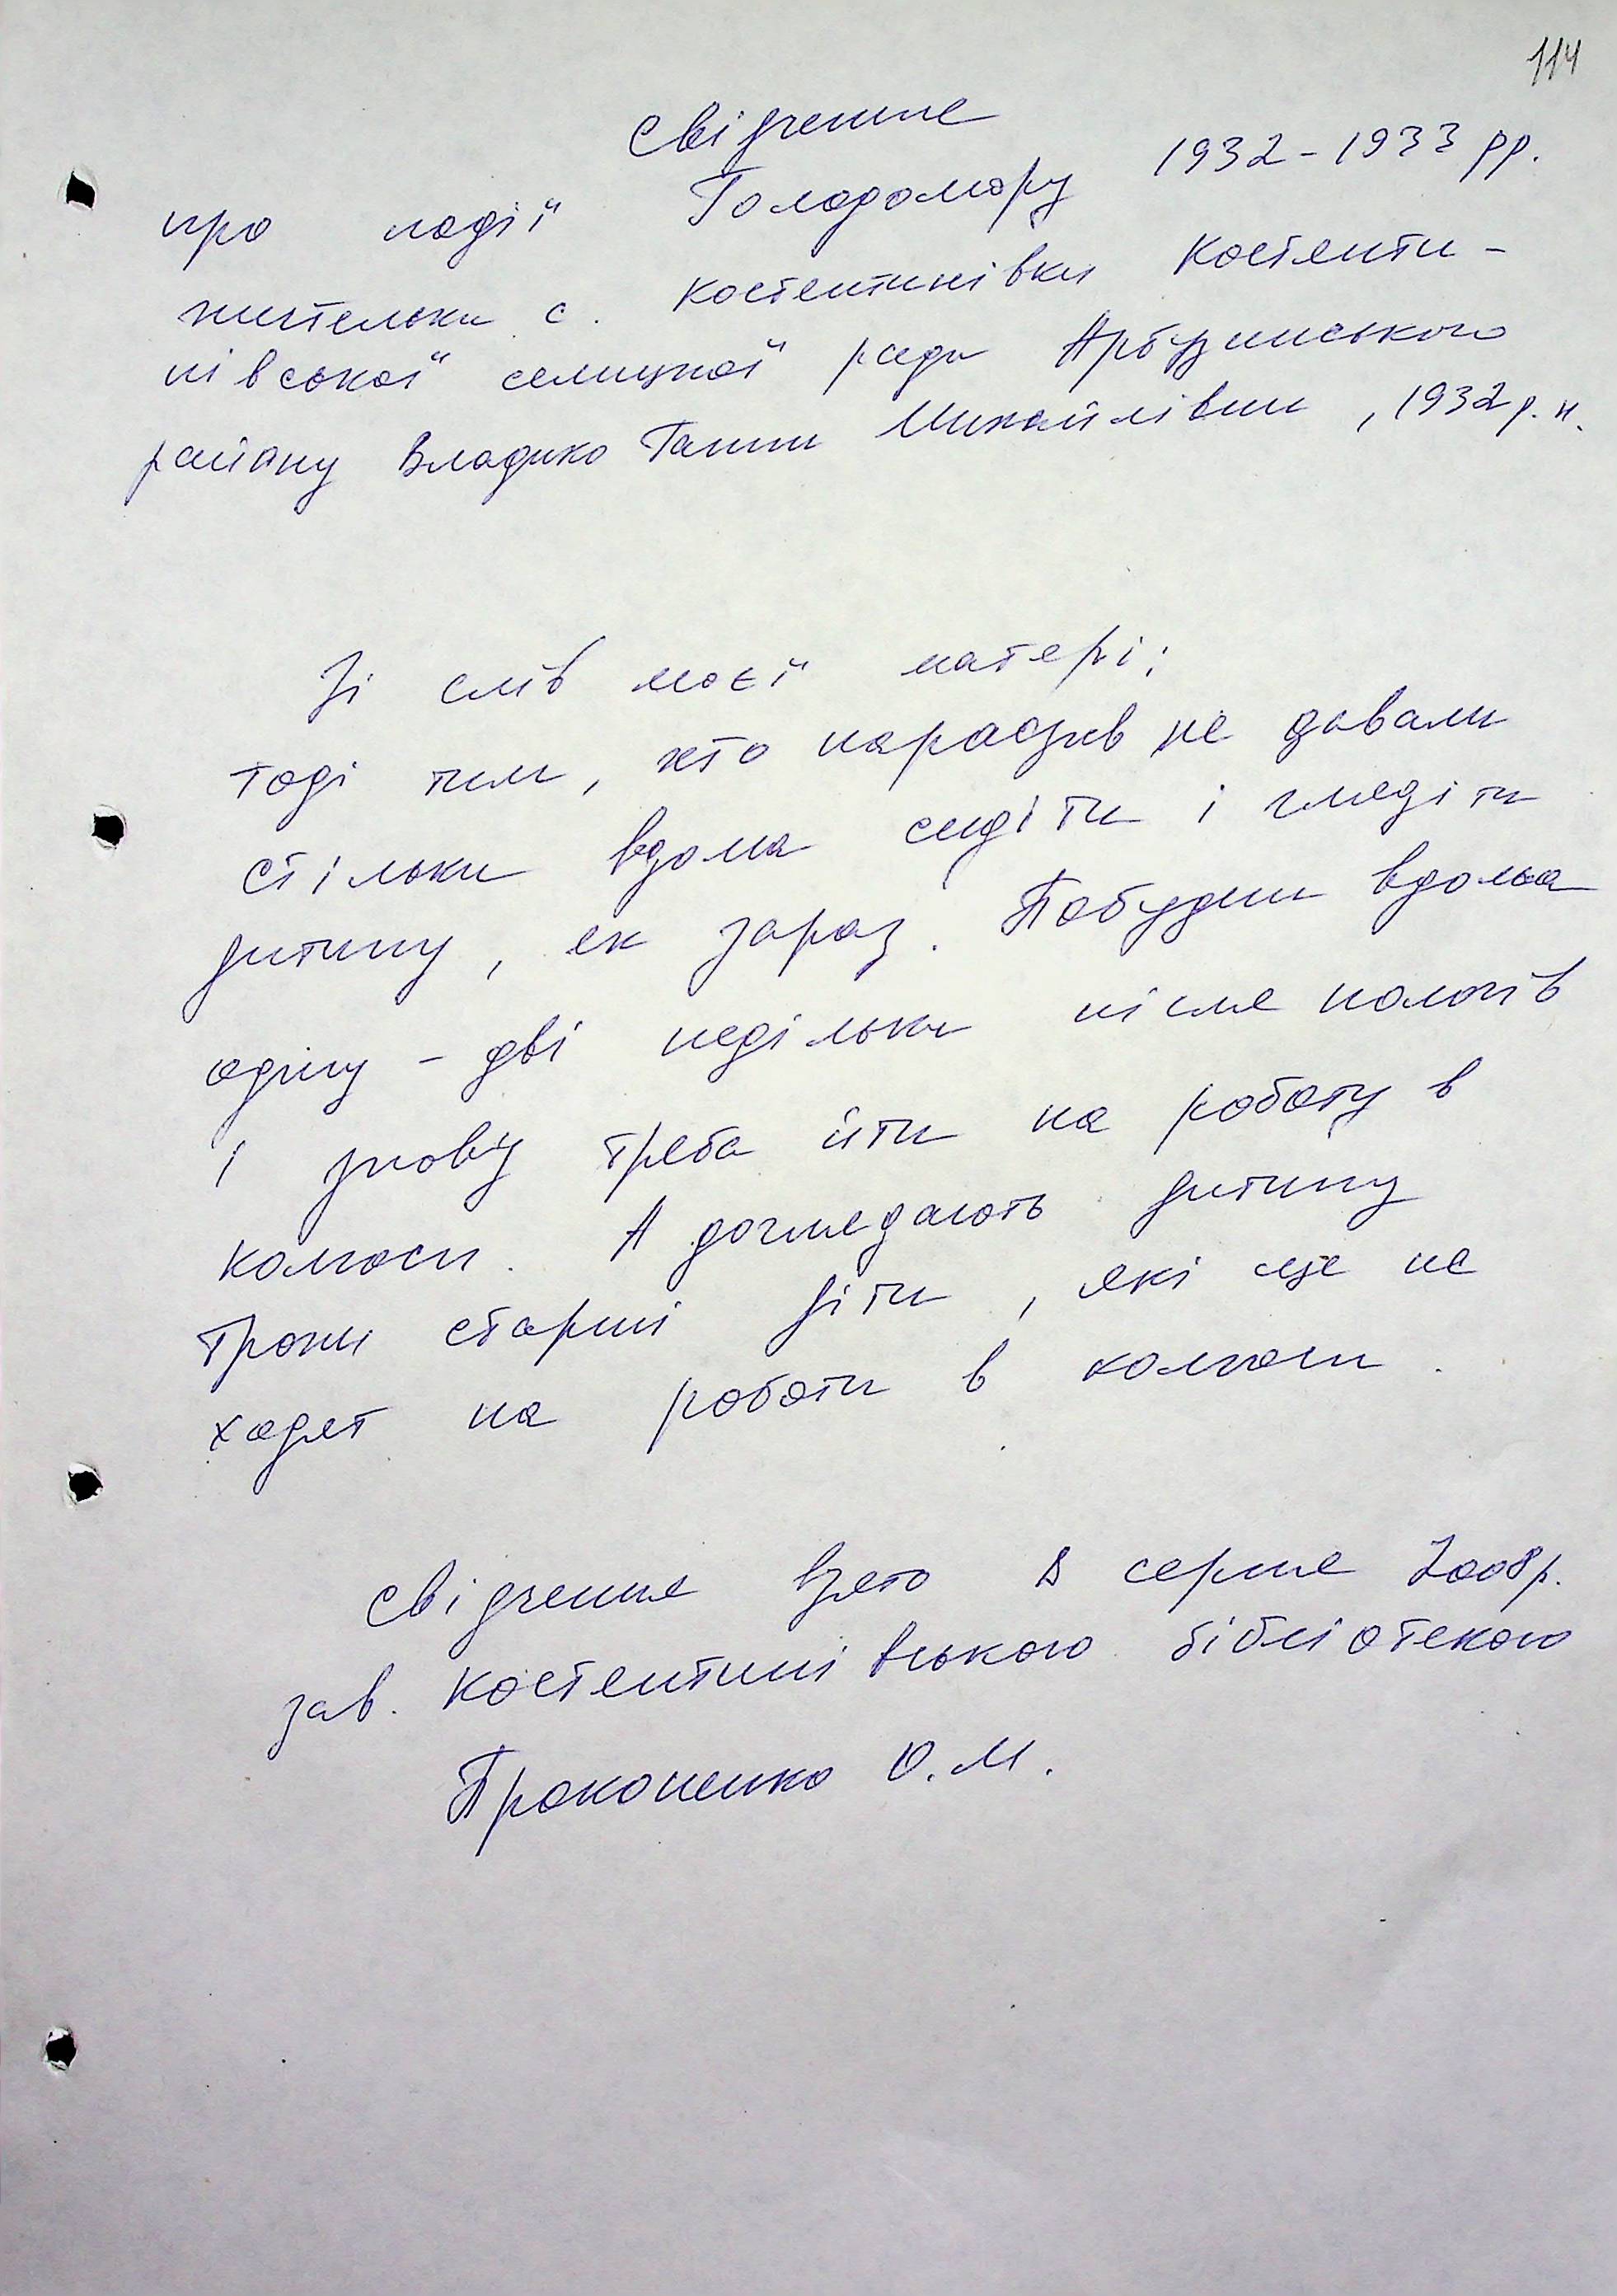 114
Свідчення
про події Голодомору 1932-1933 рр.
жительки с. Костянтинівки Костянти-
нівської селищної ради Арбузинського
району Владико Ганни Михайлівни, 1932 р.н.
Зі слів моєї матері:
тоді тим, хто народжив не давали
стільки вдома сидіти і глядіти
дитину, як зараз. Побудеш вдома
одну - дві недільки після пологів
і знову треба йти на роботу в
колгосп. А доглядають дитину
трохи старші діти, які ще не
ходят на роботи в колгосп.
Свідчення взято в серпне 2008р.
зав. Костянтинівською бібліотекою
Прокопенко О.М.